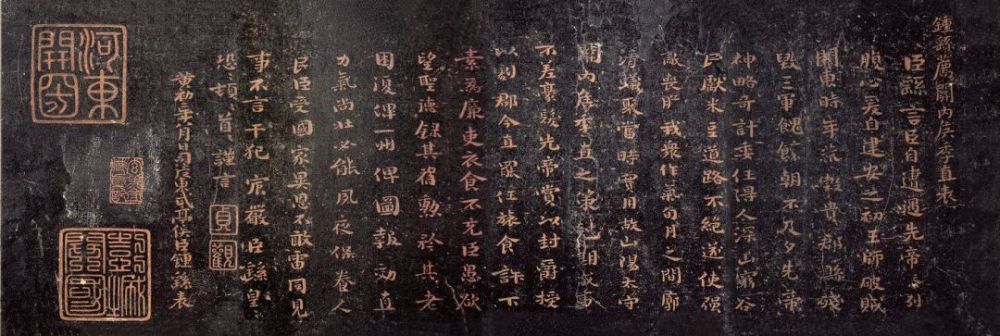 鍾繇薦關內侯季直表
臣繇言臣自遭遇先帝忝列
腹心爰自建安之初王師破賊
關東時年荒穀貴郡縣殘
毀三軍餽饟朝不及夕先帝
神略奇計委任得人深山窮谷
民獻米豆道路不絕遂使強
敵喪膽我眾作氣旬月之間廓
清蟻聚當時實用故山陽太守
關內侯季直之策剋期成事
不差豪髮先帝賞以封爵授
以劇郡今直罷任旅食許下
素為廉吏衣食不充臣愚欲
望聖德錄其舊勳矜其老
困復俾一州俾圖報効直
力氣尚壯必能夙夜保養人
民臣受國家異恩不敢雷同見
事不言干犯宸嚴臣繇皇
恐々頓々首々謹言
貞觀
黃初二年八月日司徒東武亭侯臣鍾繇表
河東